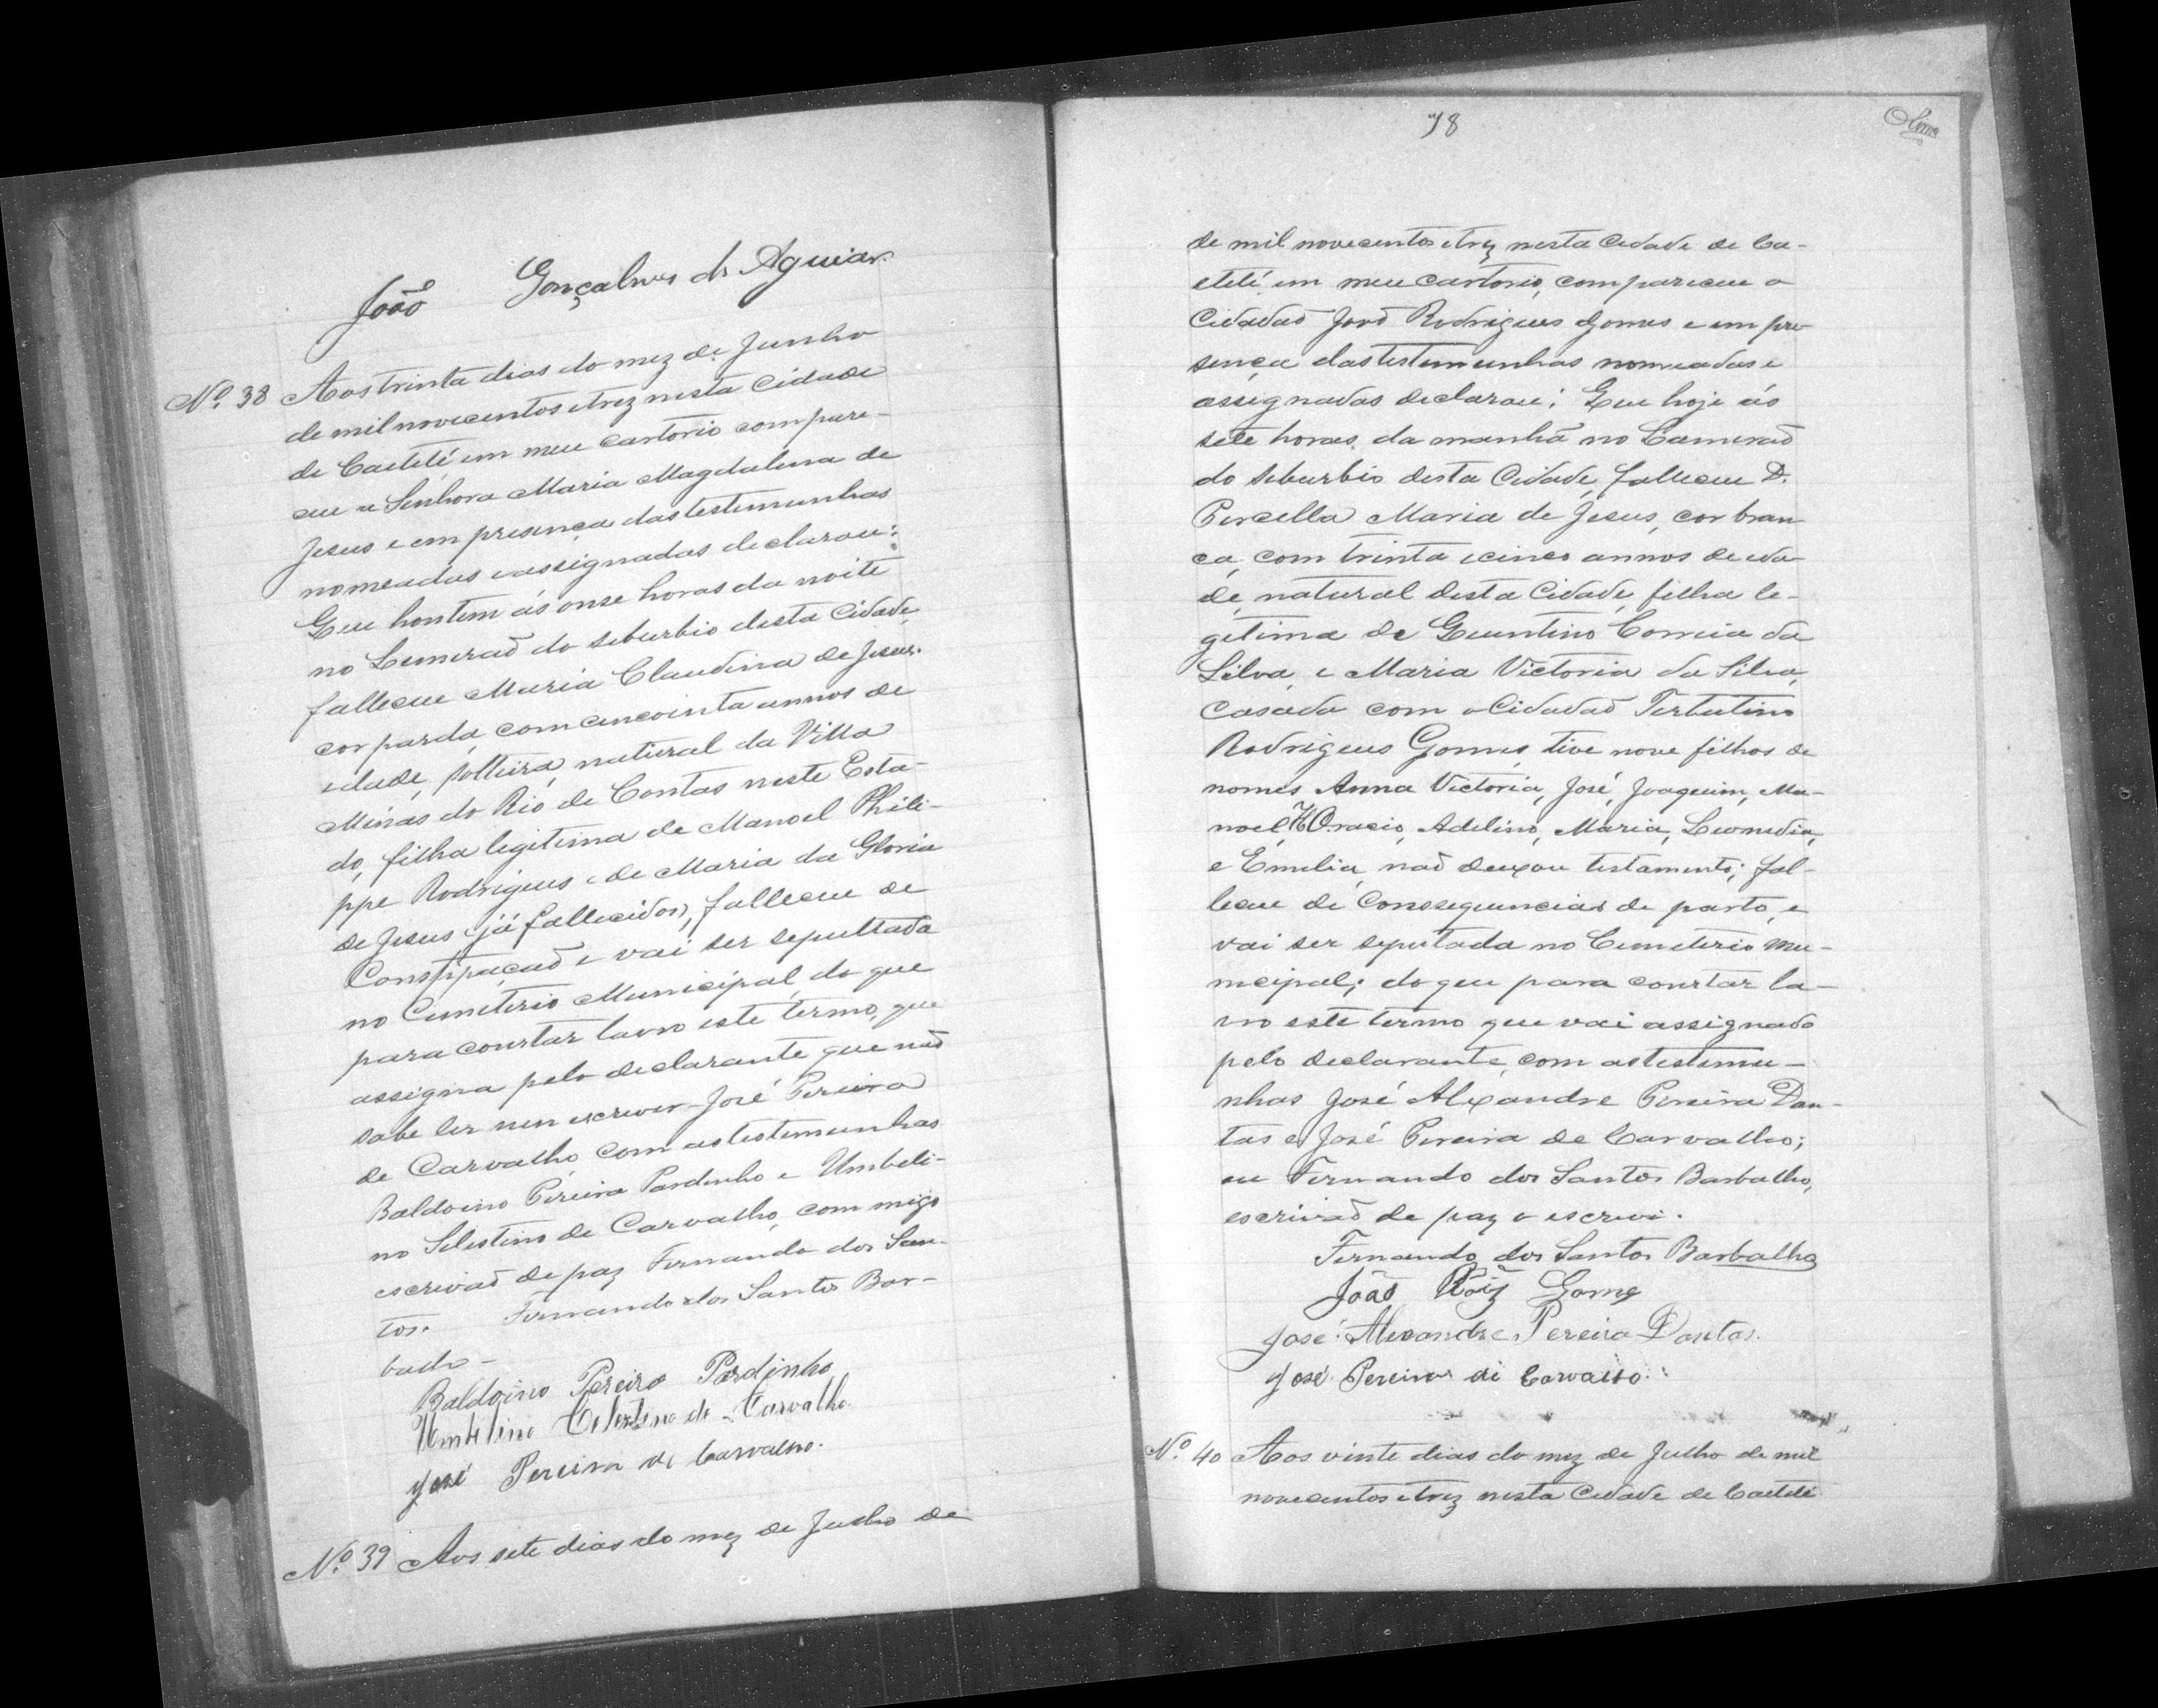 João Gonçalves de Aguiar
Nº. 38 Aos trinta dias do mez de Junho
de mil novecentos e trez nesta Cidade
de Caeteté em meu cartorio compare-
ceu a Senhora Maria Magdalena de
Jesus e em presença das testemunhas
nomeadas e assignadas declarou:
Que hontem ás onse horas da noite
no do suburbio desta Cidade,
falleceu Maria Claudina de Jesus.
cor parda, com cincointa annos de
idade, solteira, natural da Villa
Minas do Rio de Contas neste Esta-
do, filha legitima de Manoel Phili-
ppe Rodrigues e de Maria da Gloria
de Jesus (já fallecidos), falleceu de
Constipação e vai ser sepultada
no Cimeterio Municipal, do que
para constar lavro este termo, que
assigna pelo declarante que não
sabe ler nem escrever José Pereira
de Carvalho, com as testemunhas
Baldoino Pereira Pardinho e Umbeli-
no Selestino de Carvalho, com migo
escrivaõ de paz Fernando dos San-
tos. Fernando dos Santos Bar-
balho -
Baldoino Pereira Pardinho
Umbelino Celestino de Carvalho.
José Pereira de Carvalho.
Nº. 39 Aos sete dias do mez de Julho de
78
de mil novecentos e trez nesta Cidade de Ca-
eteté em meu cartorio, compareceu o
Cidadaõ Joaõ Rodrigues Gomes e em pre
sença das testemunhas nomeadas e
assignadas declarou: Que hoje ás
sete horas da manhã no
do suburbio desta Cidade, falleceu D.
Percella Maria de Jesus, cor bran
ca, com trinta e cinco annos de ida
de, natural desta Cidade, filha le-
gitima de Quintino Correia da
Silva, e Maria Victoria da Silva,
Casada com o Cidadaõ Terbutino
Rodrigues Gomes, tive nove filhos de
nomes Anna Victoria, José, Joaquim, Ma-
noel, HOracio, Adelino, Maria, Leonidia,
e Emilia, naõ deixou testamento; fal-
leceu de Consequencias de parto, e
vai ser seputada no Cemeterio Mu-
nicipal; do que para constar la-
vro este termo que vai assignado
pelo declarante, com as testemu-
nhas José Alexandre Pereira Dan-
tas e José Pereira de Carvalho;
eu Fernando dos Santos Barbalho,
escrivaõ de paz o escrevi.
Fernando dos Santos Barbalho
João Roiz Gomes
José Alexandre Pereira Dantas.
José Pereira de Carvalho.
Nº. 40 Aos vinte dias do mez de Julho de mil
novecentos e trez nesta Cidade de Caeteté